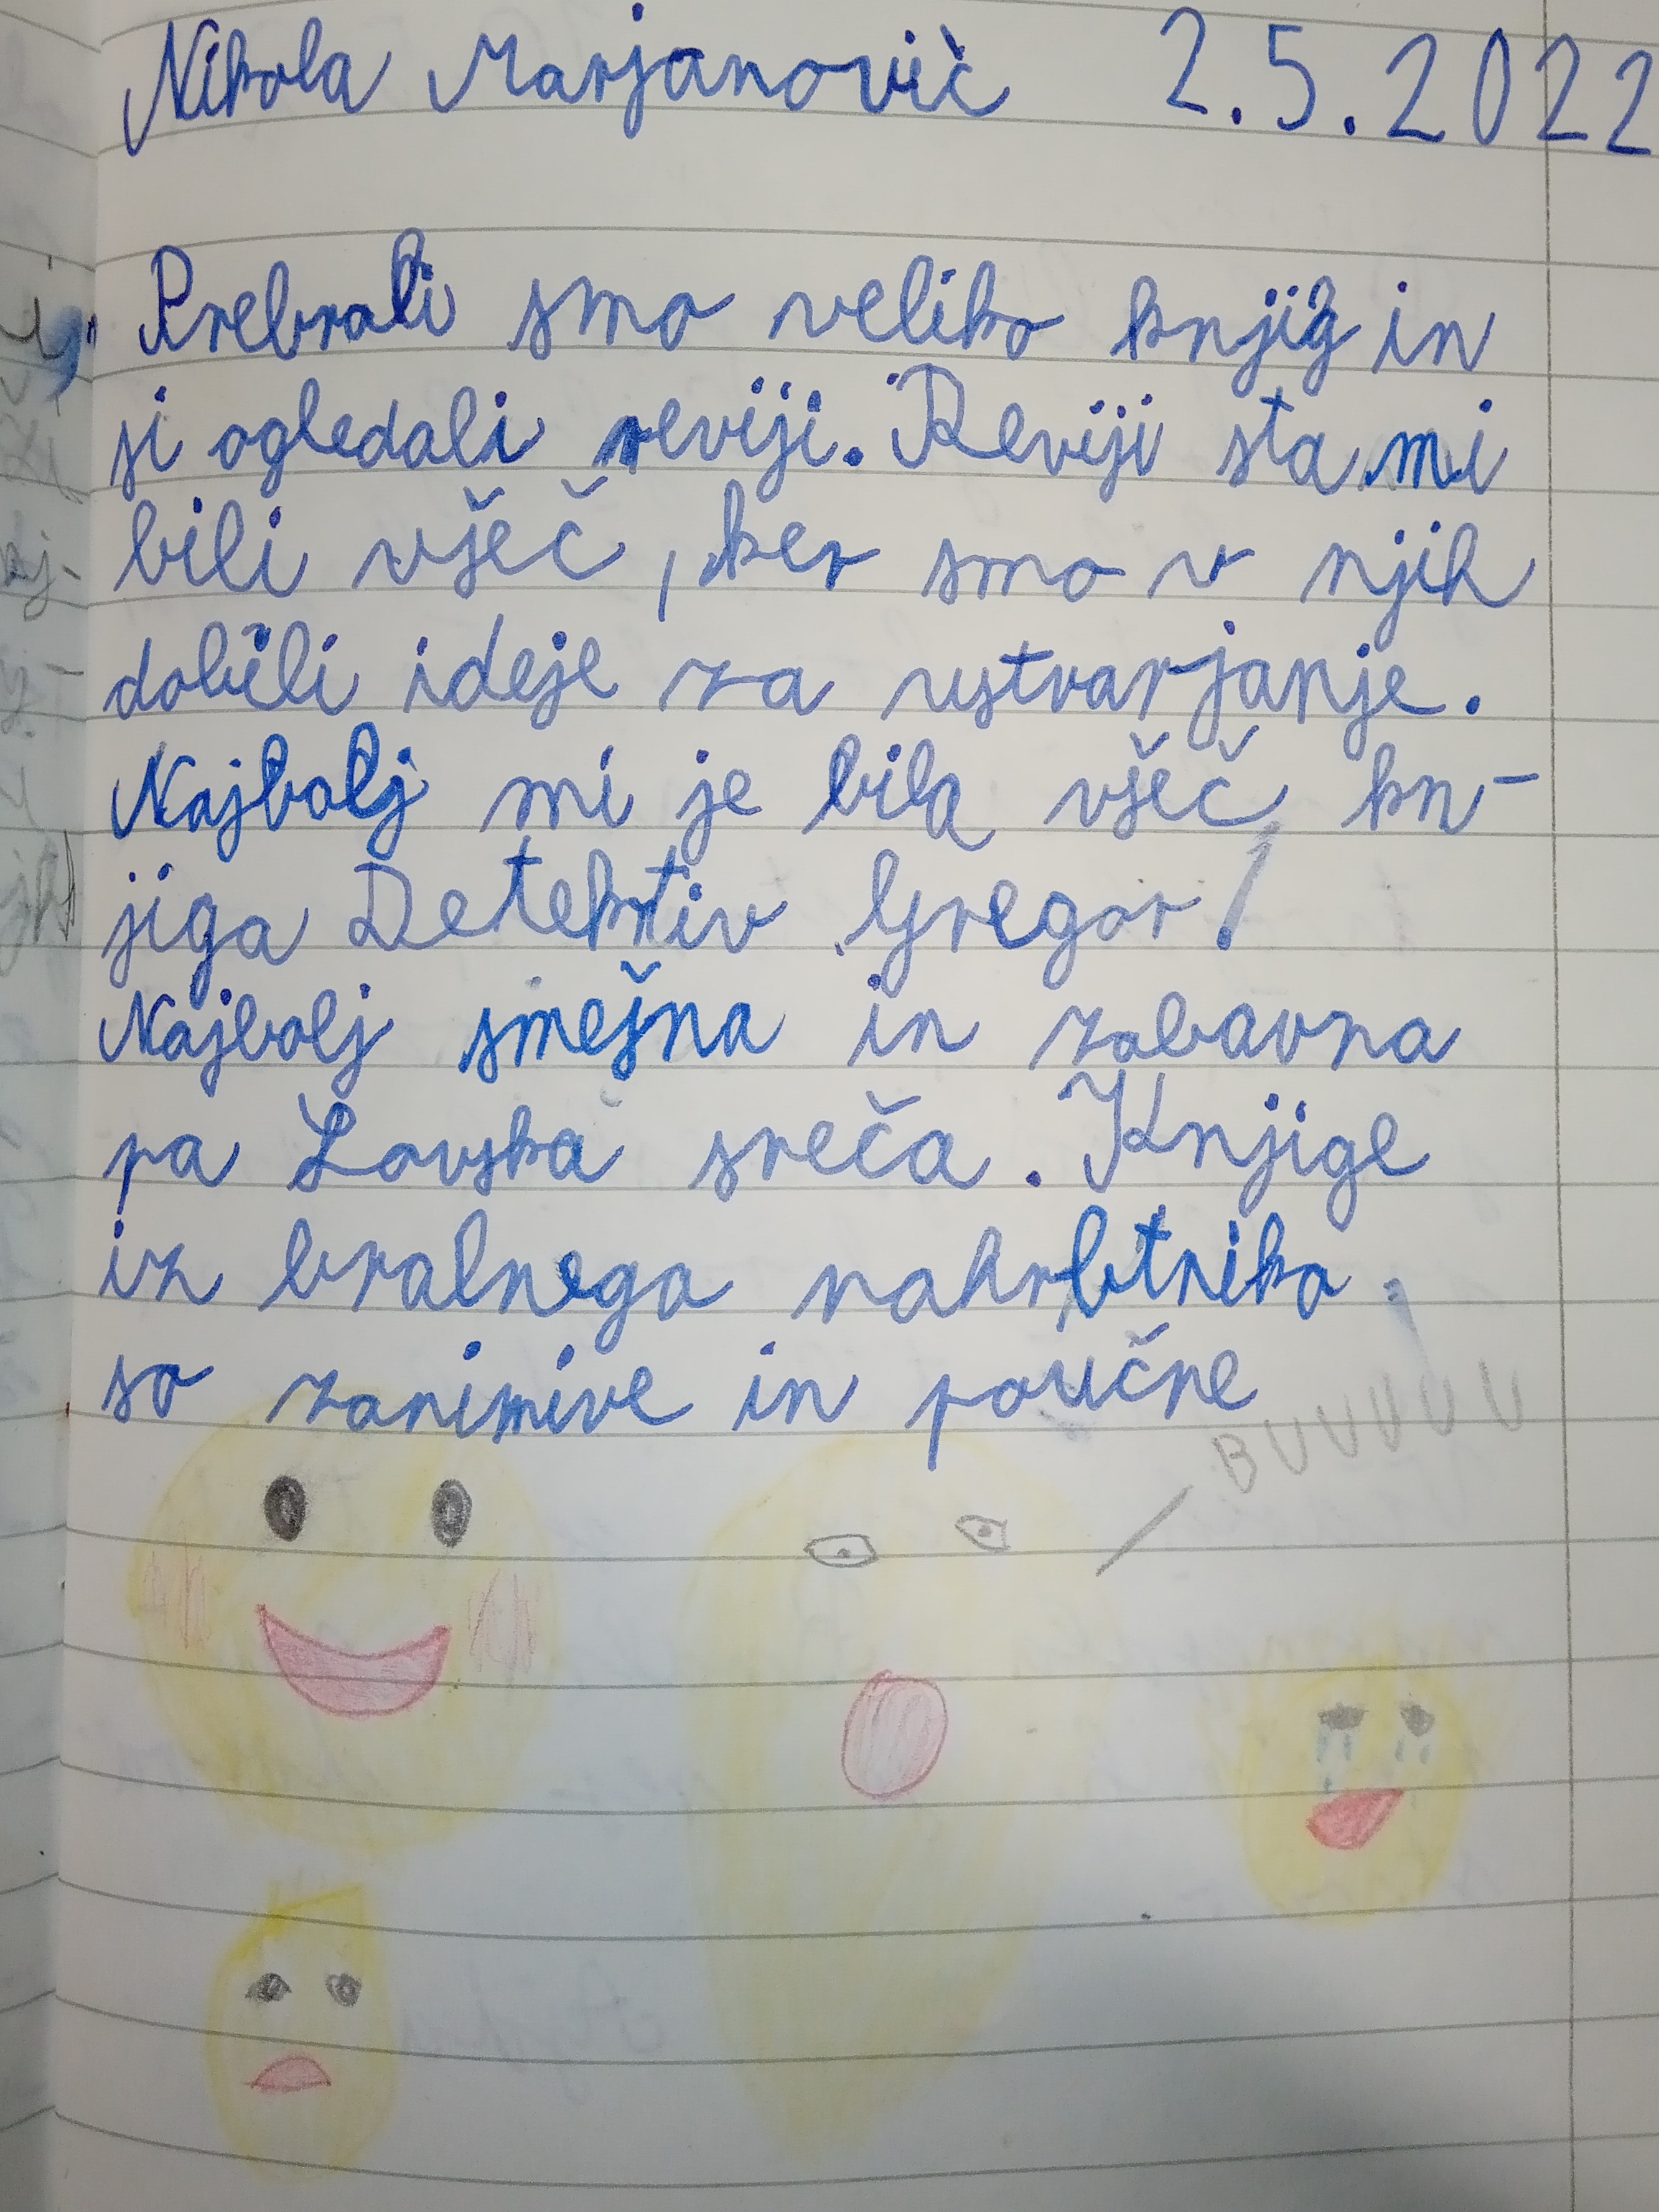 Nikola Marjanovič 2.5.2022
Prebrali smo veliko knjig in
si ogledali reviji. Reviji sta mi
bili všeč, ker smo v njih
dobili ideje za ustvarjanje.
Najbolj mi je bila všeč kn-
jiga Detektiv Gregor.
Najbolj smešna in zabavna
pa Lovska sreča. Knjige
iz bralnega nahrbtnika
so zanimive in poučne
BUUUUU